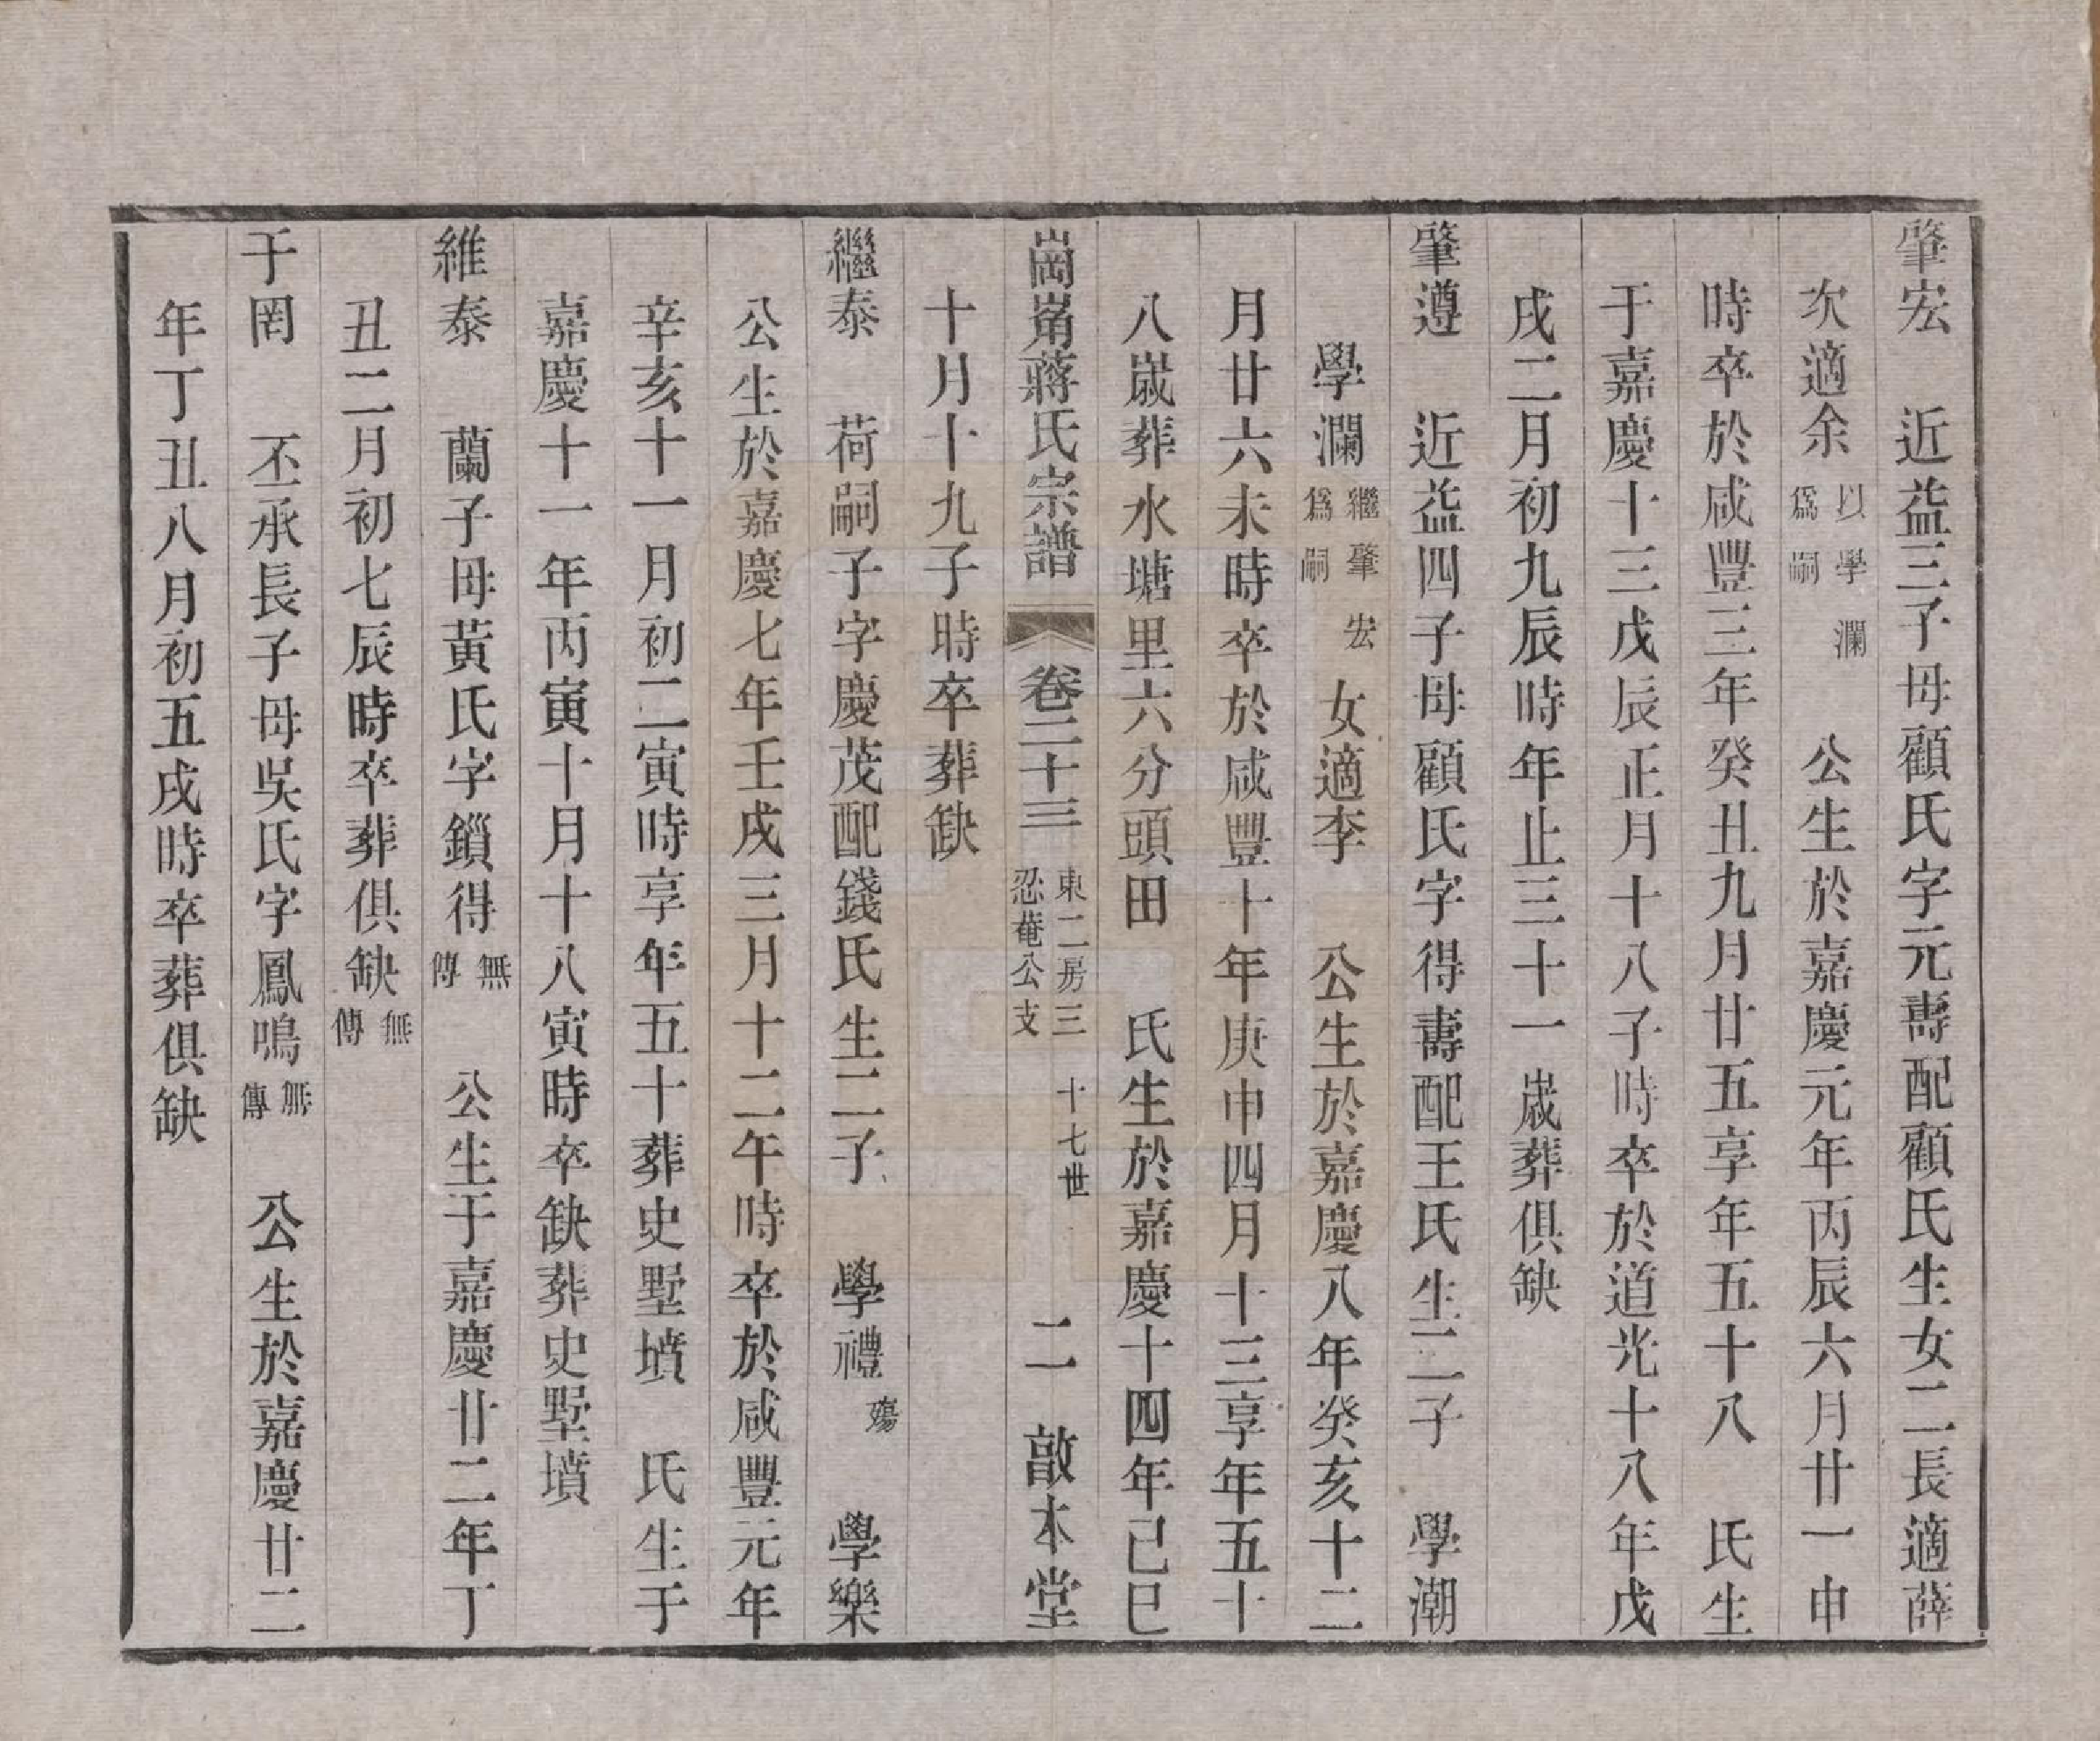 肇宏　近益三子母顧氏字元壽配顧氏生女二長適薛
次適余以學瀾為嗣　公生於嘉慶元年丙辰六月廿一申
時卒於咸豐三年癸丑九月廿五享年五十八　氏生
于嘉慶十三戊辰正月十八子時卒於道光十八年戊
戌二月初九辰時年止三十一歲葬俱缺
肇遵　近益四子母顧氏字得壽配王氏生二子　學潮
學瀾繼肇宏為嗣　女適李　公生於嘉慶八年癸亥十二
月廿六未時卒於咸豐十年庚申四月十三享年五十
八歲葬水塘里六分頭田　氏生於嘉慶十四年己巳
崗峝蔣氏宗譜　卷二十三　東二房三忍菴公支　十七世　二　敦本堂
十月十九子時卒葬缺
繼泰　荷嗣子字慶茂配錢氏生二子　學禮殤　學樂
公生於嘉慶七年壬戌三月十二午時卒於咸豐元年
辛亥十一月初二寅時享年五十葬史墅墳　氏生于
嘉慶十一年丙寅十月十八寅時卒缺葬史墅墳
維泰　蘭子母黃氏字鎖得無傳　公生于嘉慶廿二年丁
丑二月初七辰時卒葬俱缺無傳
于罔　丕承長子母吳氏字鳳鳴無傳　公生於嘉慶廿二
年丁丑八月初五戌時卒葬俱缺